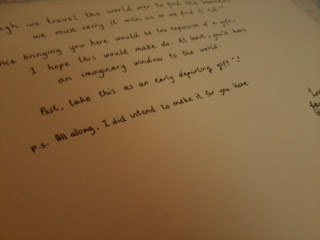 ugh we travel the world over to find the beautiful
we must carry it with us or we find it not."
nce bringing you here would be too expensive of a gift,
I hope this would make do. At least, you'd have
an imaginary window to the world.
Psst, take this as an early departing gift
p.s. All along, I did intend to make it for you hone